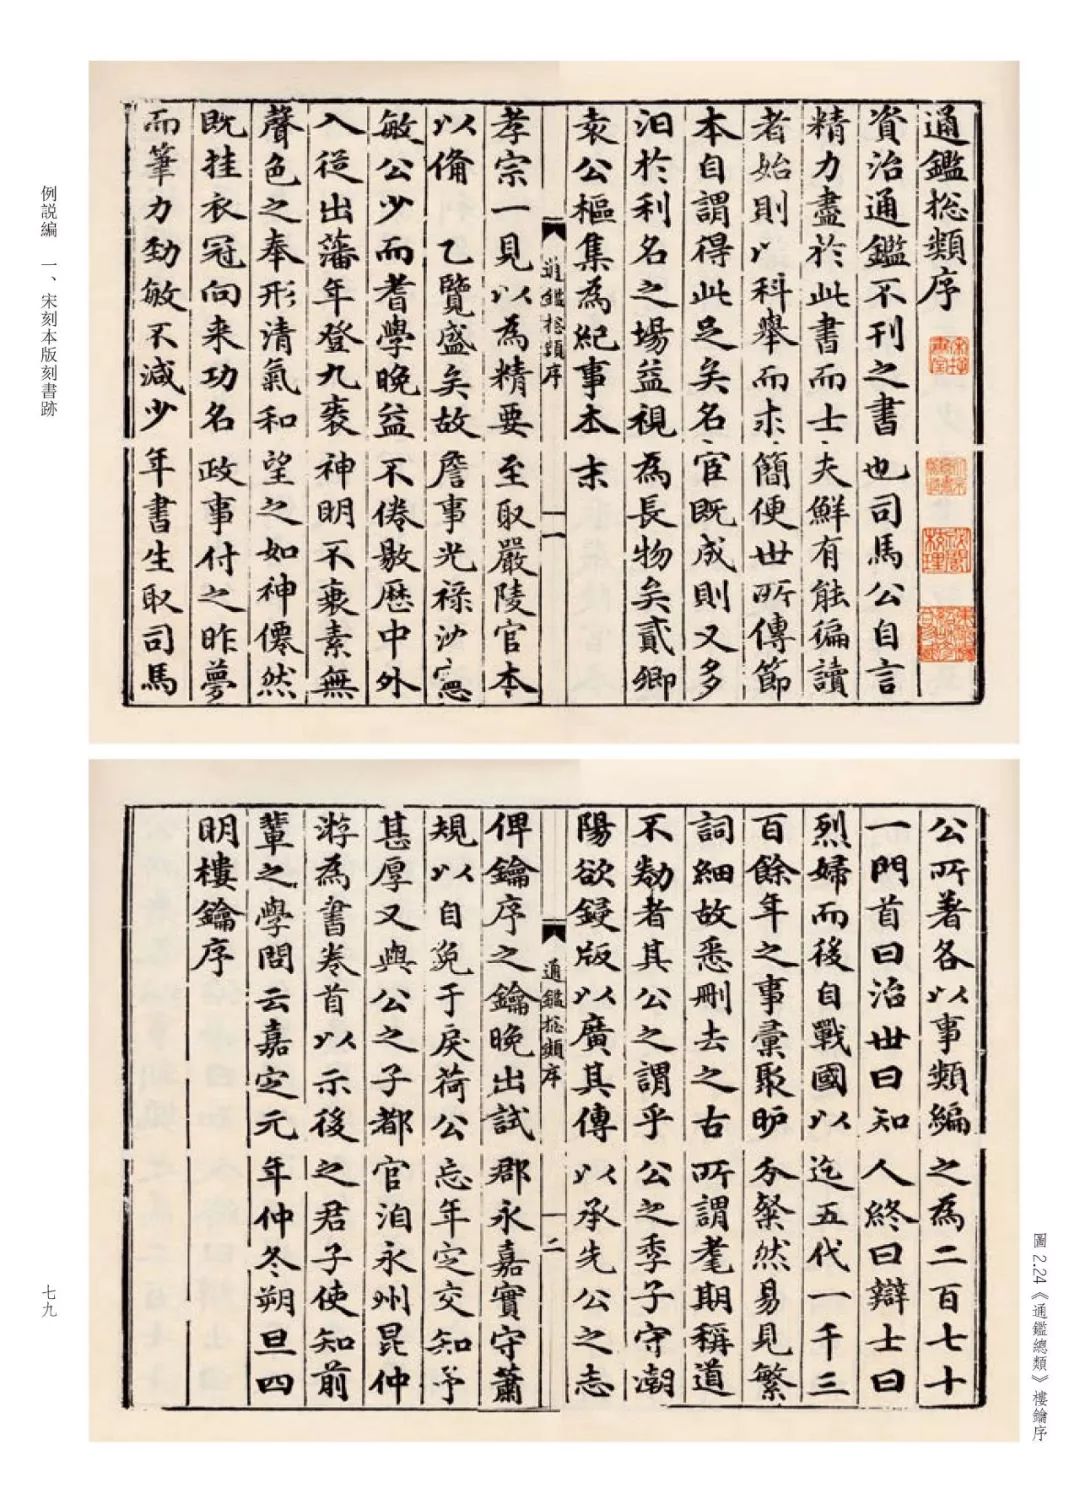 通鑑総類序
資治通鑑不刊之書也司馬公自言
精力盡於此書而士夫鮮有能徧讀
者始則以科舉而求簡便世所傳節
本自謂得此足矣名宦既成則又多
汩於利名之場益視為長物矣貳卿
袁公樞集為紀事本末
通鑑総類序
一
孝宗一見以為精要至取嚴陵官本
以備 乙覽盛矣故詹事光祿沙憲
敏公少而耆學晚益不倦敭歷中外
入從出藩年登九袠神明不衰素無
聲色之奉形清氣和望之如神僊然
既挂衣冠向来功名政事付之昨夢
而筆力勁敏不減少年書生取司馬
公所著各以事類編之為二百七十
一門首曰治世曰知人終曰辯士曰
烈婦而後自戰國以迄五代一千三
百餘年之事彙聚昈分粲然易見繁
詞細故悉刪去之古所謂耄期稱道
不勌者其公之謂乎公之季子守潮
陽欲鋟版以廣其傳以承先公之志
通鑑総類序
二
俾鑰序之鑰晚出試郡永嘉實守蕭
規以自免于戾荷公忘年定交知予
甚厚又與公之子都官洎永州昆仲
游為書卷首以示後之君子使知前
輩之學問云嘉定元年仲冬朔旦四
明樓鑰序
例説編 一、宋刻本版刻書跡
七九
圖2.24《通鑑總類》樓鑰序